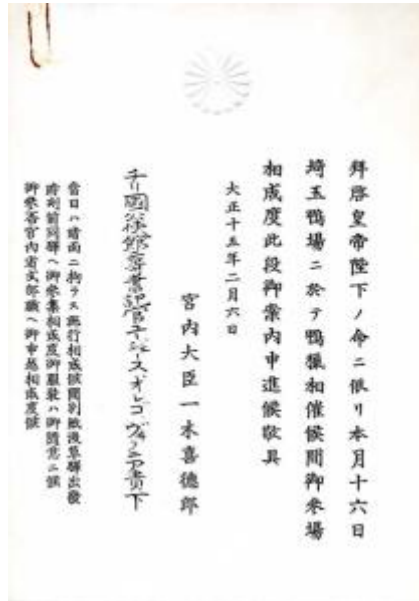 拜啓皇帝陛下ノ命ニ依リ本月十六日
埼玉鴨場ニ於テ鴨獵相催候間御參場
相成度此段御案内申進候敬具
大正十五年二月六日
宮内大臣一木喜德郎
チリ國公使館
當日ハ晴雨ニ拘ラス施行相成候間別紙淺草驛出發
時刻前同驛ヘ御參集相成度御服裝ハ御隨意ニ候
御參否宮内省式部職ヘ御申越相成度候